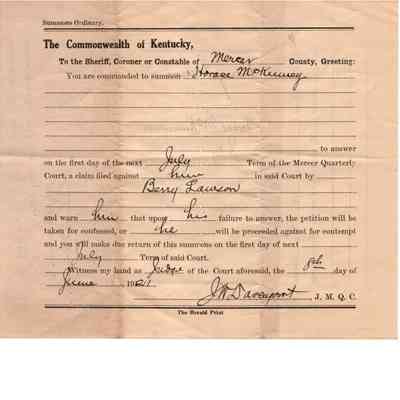 Summons Ordinary.
The Commonwealth of Kentucky,
To the Sheriff, Coroner or Constable of Mercer County, Greeting:
You are commanded to summon Horace McKinney
to answer
on the first day of the next July Term of the Mercer Quarterly
Court, a claim filed against him in said Court by
Berry Lawson
and warn him that upon his failure to answer, the petition will be
taken for confessed, or he will be proceeded against for contempt
and you will make due return of this summons on the first day of next
July Term of said Court.
Witness my hand as Judge of the Court aforesaid, the 8th day of
June 19
J.W. Davenport, J. M. Q. C.
The Herald Print